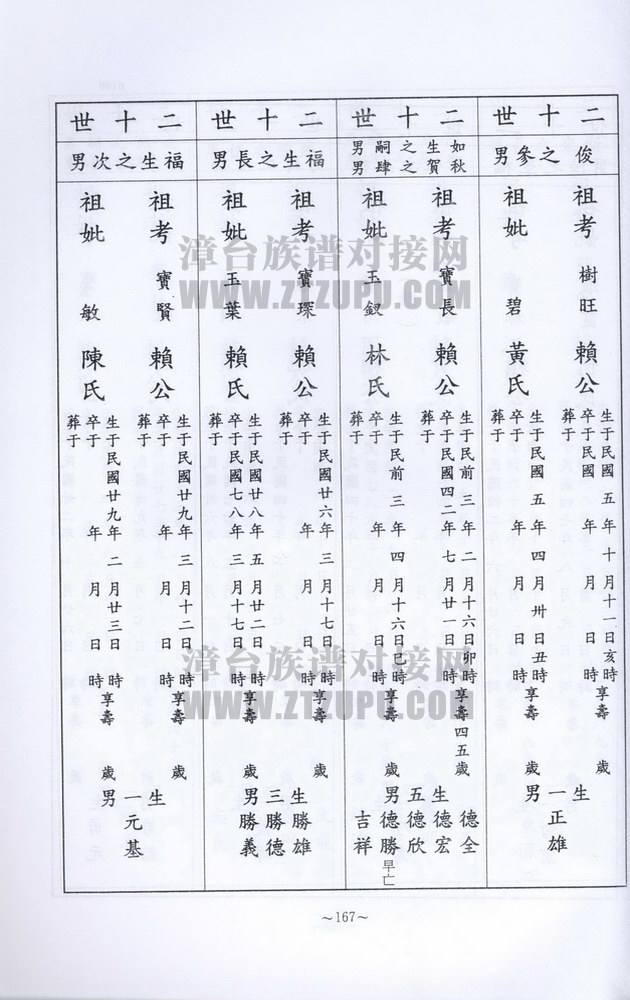 二十世
俊之參男
祖考 樹旺 賴公
生于民國五年十月十一日亥時享壽
卒于民國 年 月 日 時 歲
葬于
祖妣 碧 黃氏
生于民國五年四月卅日丑時
卒于 年 月 日 時
葬于
生一男
正雄
二十世
如生之嗣男
秋賀之肆男
祖考 寶長 賴公
生于民前三年二月十六日卯時享壽四五歲
卒于民國四二年七月廿一日 時
葬于
祖妣 玉釵 林氏
生于民前三年四月十六日巳時享壽 歲
卒于 年 月 日 時
葬于
生五男
德全
德宏
德欣
德勝早亡
吉祥
二十世
福生之長男
祖考 寶琛 賴公
生于民國廿六年三月十七日 時享壽 歲
卒于 年 月 日 時
葬于
祖妣 玉葉 賴氏
生于民國廿八年五月廿二日 時享壽 歲
卒于民國七八年三月十七日 時
葬于
生三男
勝雄
勝德
勝義
二十世
福生之次男
祖考 寶賢 賴公
生于民國廿九年三月十二日 時享壽 歲
卒于 年 月 日 時
葬于
祖妣 敏 陳氏
生于民國廿九年二月廿三日 時享壽 歲
卒于 年 月 日 時
葬于
生一男
元基
~167~
漳台族谱对接网
WWW.ZTZUPU.COM
漳台族谱对接网
WWW.ZTZUPU.COM